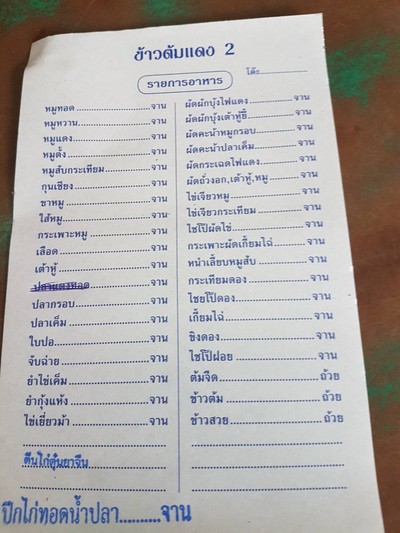 ข้าวต้มแดง 2
รายการอาหาร
โต๊ะ
หมูทอด จาน
หมูหวาน จาน
หมูแดง จาน
หมูตั้ง จาน
หมูสับกระเทียม จาน
กุนเชียง จาน
ขาหมู จาน
ไส้หมู จาน
กระเพาะหมู จาน
เลือด จาน
เต้าหู้ จาน
ปลาแดงทอด จาน
ปลากรอบ จาน
ปลาเค็ม จาน
ใบปอ จาน
จับฉ่าย จาน
ยำไข่เค็ม จาน
ยำกุ้งแห้ง จาน
ไข่เยี่ยวม้า จาน
ตีนไก่ตุ๋นยาจีน
ผัดผักบุ้งไฟแดง จาน
ผัดผักบุ้งเต้าหู้ยี้ จาน
ผัดคะน้าหมูกรอบ จาน
ผัดคะน้าปลาเค็ม จาน
ผัดกระเฉดไฟแดง จาน
ผัดถั่วงอก,เต้าหู้,หมู จาน
ไข่เจียวหมู จาน
ไข่เจียวกระเทียม จาน
ไชโป้ผัดไข่ จาน
กระเพาะผัดเกี้ยมไฉ่ จาน
หนำเลี้ยบหมูสับ จาน
กระเทียมดอง จาน
ไชยโป๊ดอง จาน
เกี้ยมไฉ่ จาน
ขิงดอง จาน
ไชโป๊ฝอย จาน
ต้มจืด ถ้วย
ข้าวต้ม ถ้วย
ข้าวสวย ถ้วย
ปีกไก่ทอดน้ำปลา..........จาน